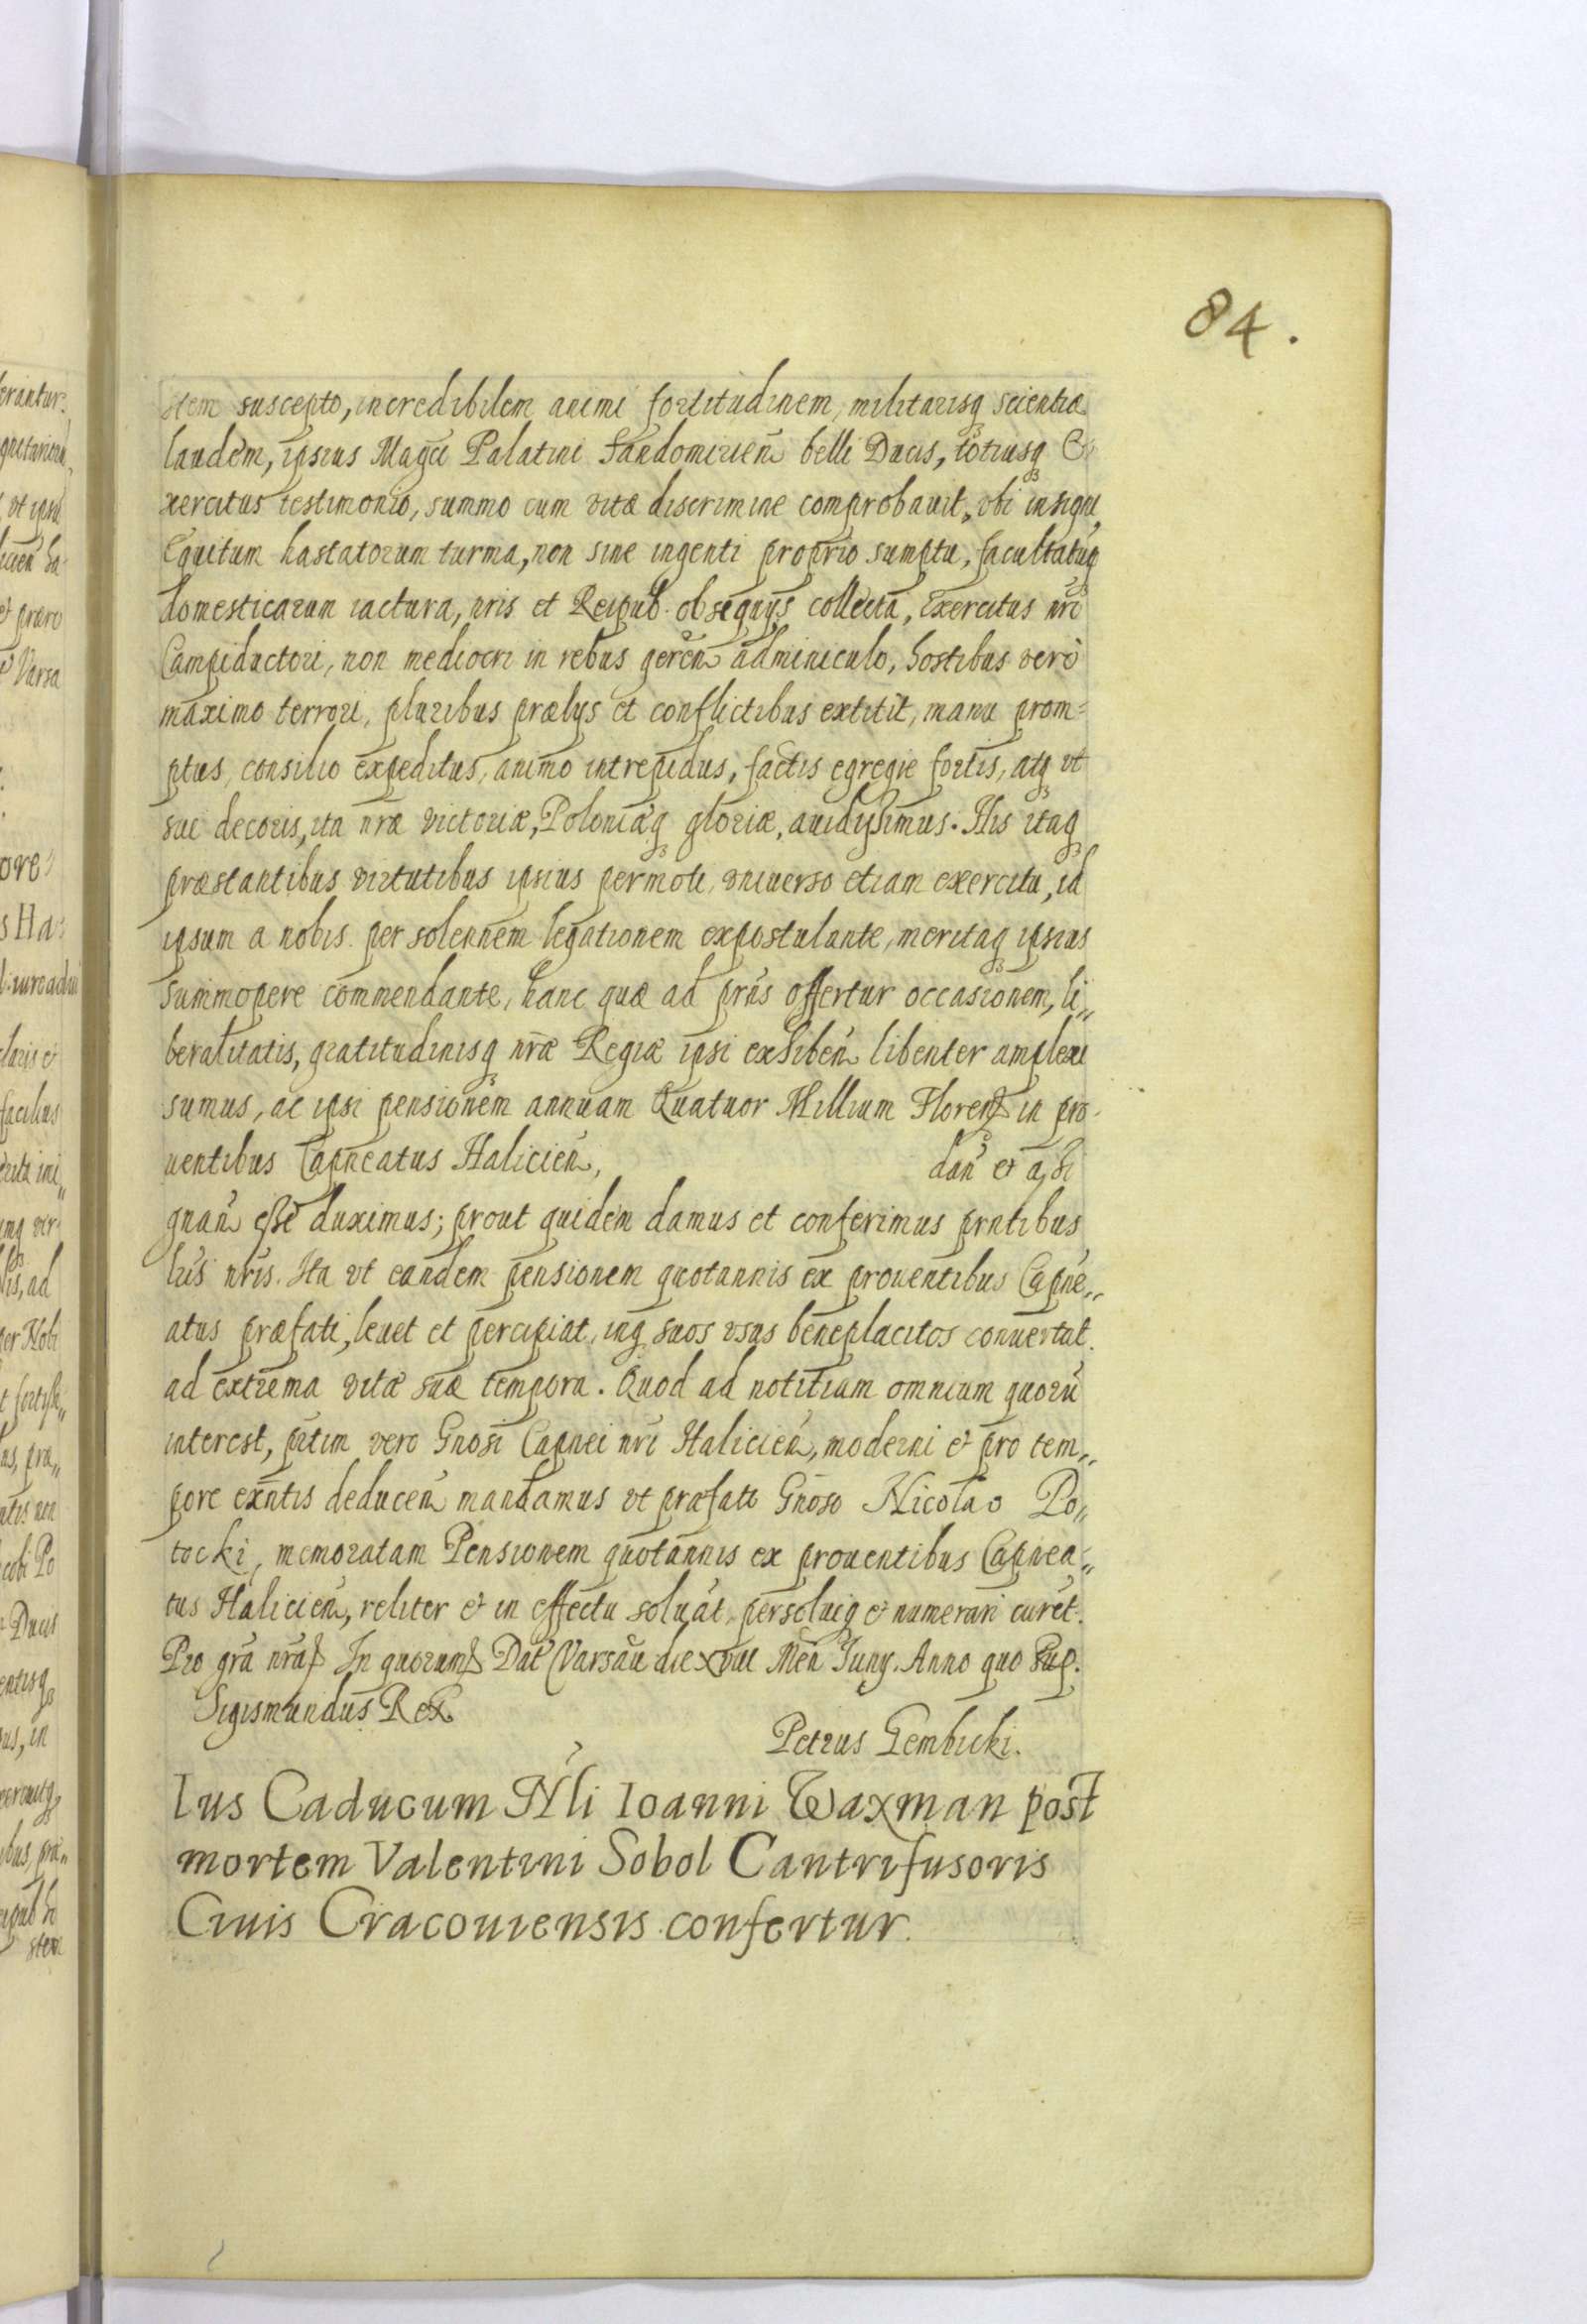 84.
stem suscepto, incredibilem animi fortitudinem, militarisq scientiæ
laudem, ipsius Magci Palatini Sandomirien belli Ducis, totiusq E
xercitus testimonio, summo cum vitæ discrimine comprobauit, vbi insigni
Equitum hastatorum turma, non sine ingenti proprio sumptu, facultatuq
domesticarum iactura, nris et Reipub. obsequys collecta, Exercitus nri
Campiductori, non mediocri in rebus geren adminiculo, hostibus verò
maximo terrori, pluribus prælys et conflictibus extitit, manu prom=
ptus, consilio expeditus, animo intrepidus, factis egregie fortis, atq vt
sui decoris, ita nræ victoriæ, Poloniæq gloriæ, auidissimus. His itaq
præstantibus virtutibus ipsius permoti, vniuerso etiam exercitu, id
ipsum a nobis per solennem legationem expostulante, meritaq ipsius
summopere commendante, hanc quæ ad prns offertur occasionem, li„
beralitatis, gratitudinisq nræ Regiæ ipsi exhiben libenter amplexi
sumus, ac ipsi pensionem annuam Quatuor Millium Floren in pro
uentibus Capneatus Halicien, dan et assi
gnan esse duximus; prout quidem damus et conferimus prntibus
lris nris. Ita vt eandem pensionem quotannis ex prouentibus Capne„
atus præfati, leuet et percipiat, inq suos vsus beneplacitos conuertat.
ad extrema vitæ suæ tempora. Quod ad notitiam omnium quorũ
interest, prtim vero Gnosi Capnei nri Halicien, moderni et pro tem„
pore exntis deducen mandamus vt præfato Gnoso Nicolao Po„
tocki, memoratam Pensionem quotannis ex prouentibus Capnea„
tus Halicien, reliter et in effectu soluat, persoluiq et numerari curet.
Pro gra nra In quorum Dat Varsau die xvii Men Juny. Anno quo sup.
Sigismundus Rex
Petrus Gembicki.
Ius Caducum Nli Ioanni Waxman post
mortem Valentini Sobol Cantrifusoris
Ciuis Cracouiensis confertur.